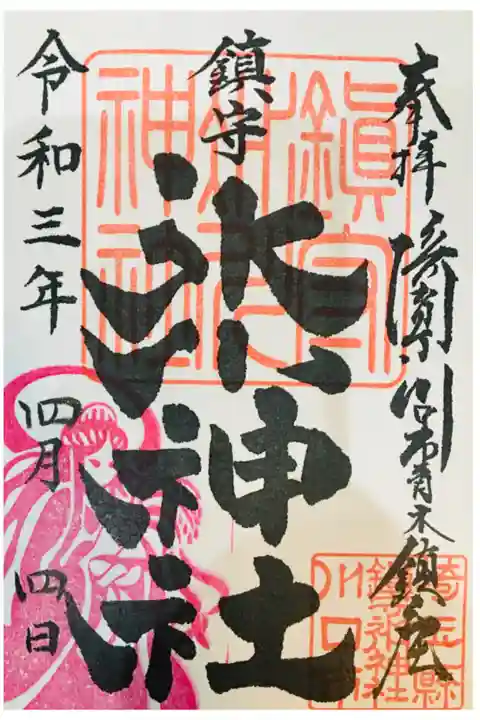 奉拝 川口市青木鎮座
鎮守
氷川神社
令和三年 四月 四日
鎮守
氷川
神社
埼玉縣
鎮守氷川神社
川口市